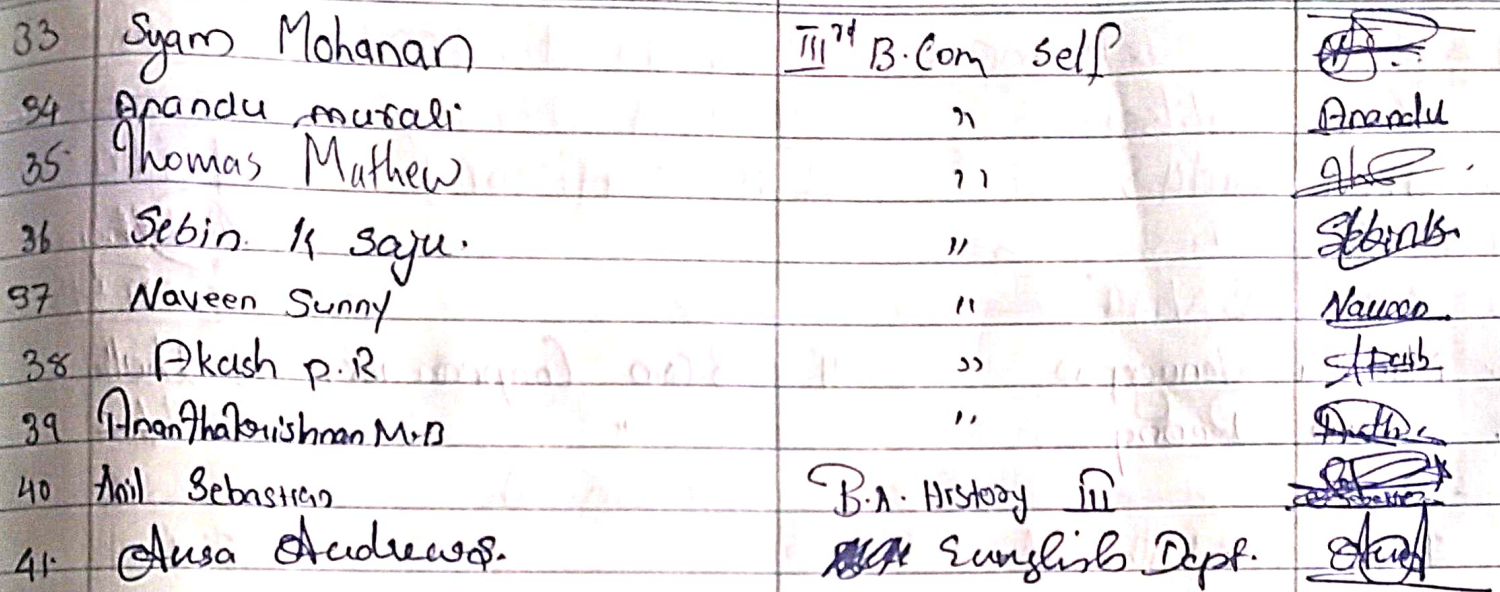 33 Syam Mohanan IIIrd B.Com Self
34 Anandu murali " Anandu
35 Thomas Mathew "
36 Sebin K Saju. " Sebin
37 Naveen Sunny " Naveen
38 Akash P.R "
39 Ananthakrishnan M.B "
40 Anil Sebastian B.A. History III
41. Ansa Andrews. Eunglish Dept.